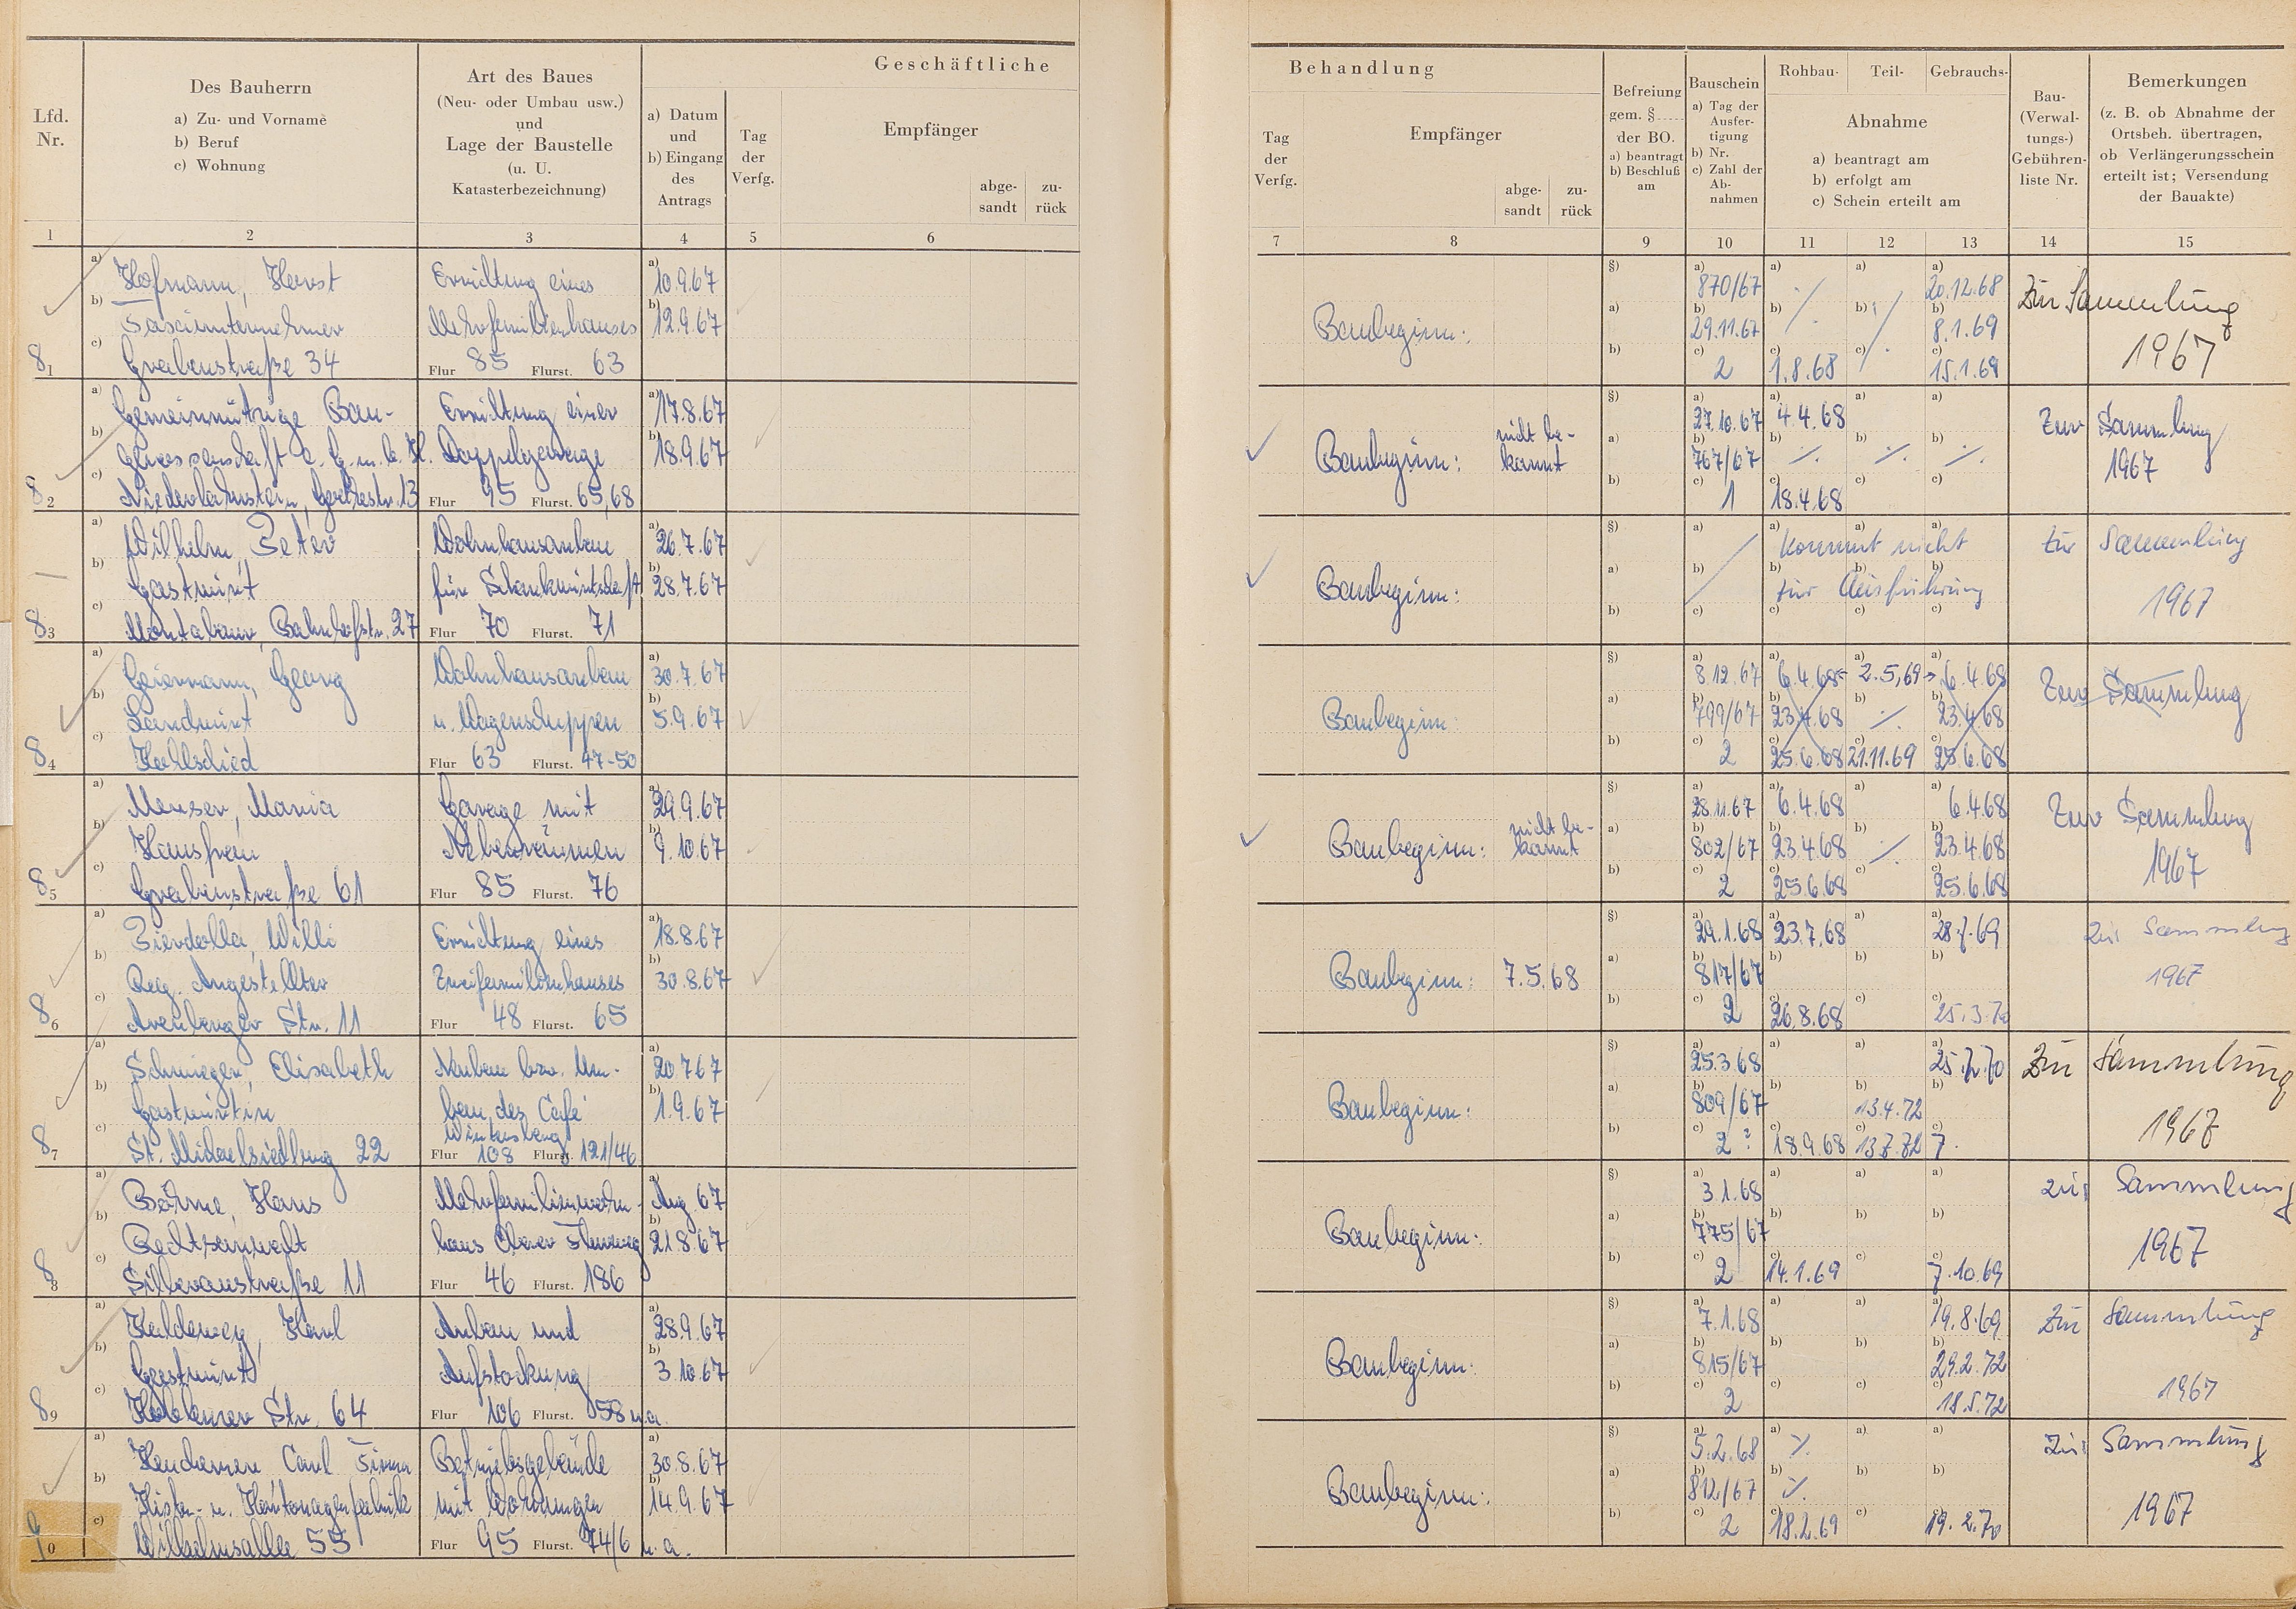 Geschäftliche
Behandlung
Lfd. Nr.
Des Bauherrn
a) Zu- und Vorname
b) Beruf
c) Wohnung
Art des Baues
(Neu- oder Umbau usw.)
und
Lage der Baustelle
(u. U.
Katasterbezeichnung)
a) Datum
und
b) Eingang
des
Antrags
Tag
der
Verfg.
Empfänger
abge-
sandt
zu-
rück
Tag
der
Verfg.
Empfänger
abge-
sandt
zu-
rück
Befreiung
gem. §
der BO.
a) beantragt
b) Beschluß
am
Bauschein
a) Tag der
Ausfer-
tigung
b) Nr.
c) Zahl der
Ab-
nahmen
Rohbau- Teil- Gebrauchs-
Abnahme
a) beantragt am
b) erfolgt am
c) Schein erteilt am
Bau-
(Verwal-
tungs-)
Gebühren-
liste Nr.
Bemerkungen
(z. B. ob Abnahme der
Ortsbeh. übertragen,
ob Verlängerungsschein
erteilt ist; Versendung
der Bauakte)
1 2 3 4 5 6 7 8 9 10 11 12 13 14 15
81
a) Hofmann, Horst
b)
c) Grabenstraße 34
Errichtung eines
Mehrfamilienhauses
Flur 85 Flurst. 63
a) 10.9.67
b) 12.9.67
Baubeginn:
§)
a)
b)
a) 870/67
b) 29.11.67
c) 2
a) ٪
b)
c) 1.8.68
a)
b)
c)
a) 20.12.68
b) 8.1.69
c) 15.1.69
Zur Sammlung
1967
82
a) Gemeinnützige Bau-
b) Genossenschaft e.G.m.b.H.
c) Niederlahnstein, Goethestr. 13
Errichtung einer
Doppelgarage
Flur 95 Flurst. 65,68
a) 17.8.67
b) 18.9.67
Baubeginn: nicht be-
kannt
§)
a)
b)
a) 27.10.67
b) 767/67
c) 1
a) 4.4.68
b) ٪
c) 18.4.68
a)
b) ٪
c)
a)
b) ٪
c)
Zur Sammlung
1967
83
a) Wilhelm, Peter
b) Gastwirt
c) Montabaur, Bahnhofstr. 27
Wohnhausanbau
für Schankwirtschaft
Flur 70 Flurst. 71
a) 26.7.67
b) 28.7.67
Baubeginn:
§)
a)
b)
a)
b)
c)
kommt nicht
zur Ausführung
zur Sammlung
1967
84
a) Geiermann, Georg
b) Landwirt
c)
Wohnhausanbau
u. Wagenschuppen
Flur 63 Flurst. 47-50
a) 30.7.67
b) 5.9.67
Baubeginn:
§)
a)
b)
a) 8.12.67
b) 799/67
c) 2
a) 6.4.68
b) 23.4.68
c) 25.6.68
a) 2.5.69
b) ٪
c) 21.11.69
a) 6.4.68
b) 23.4.68
c) 25.6.68
Zur Sammlung
85
a) Menser, Maria
b) Hausfrau
c) Grabenstraße 61
Garage mit
Nebenräumen
Flur 85 Flurst. 76
a) 29.9.67
b) 9.10.67
Baubeginn: nicht be-
kannt
§)
a)
b)
a) 28.11.67
b) 802/67
c) 2
a) 6.4.68
b) 23.4.68
c) 25.6.68
a)
b) ٪
c)
a) 6.4.68
b) 23.4.68
c) 25.6.68
Zur Sammlung
1967
86
a) Pierdolla, Willi
b) Reg. Angestellter
c) Arenberger Str. 11
Errichtung eines
Zweifamilienhauses
Flur 48 Flurst. 65
a) 18.8.67
b) 30.8.67
Baubeginn: 7.5.68
§)
a)
b)
a) 29.1.68
b) 817/67
c) 2
a) 23.7.68
b)
c) 26.8.68
a)
b)
c)
a)
b)
c) 25.3.70
Zur Sammlung
1967
87
a) Schwieger, Elisabeth
b) Gastwirtin
c) St. Michaelsiedlung 22
Neubau bzw. Um-
bau des Café
Wintersberg
Flur 108 Flurst. 121/46
a) 20.7.67
b) 1.9.67
Baubeginn:
§)
a)
b)
a) 25.3.68
b) 809/67
c) 2 ?
a)
b)
c) 18.9.68
a)
b) 13.4.72
c)
a)
b)
c) 7.
Zur Sammlung
1967
88
a) Böhme, Hans
b) Rechtsanwalt
c) Silberaustraße 11
Mehrfamilienwohn-
haus
Flur 46 Flurst. 186
a) Aug. 67
b) 21.8.67
Baubeginn:
§)
a)
b)
a) 3.1.68
b) 775/67
c) 2
a)
b)
c) 14.1.69
a)
b)
c)
a)
b)
c) 7.10.69
zur Sammlung
1967
89
a) Kaldewey, Karl
b) Gastwirt
c) Str. 64
Anbau und
Aufstockung
Flur 106 Flurst. 58 u.a.
a) 28.9.67
b) 3.10.67
Baubeginn:
§)
a)
b)
a) 7.1.68
b) 815/67
c) 2
a)
b)
c)
a)
b)
c)
a) 19.8.69
b) 29.2.72
c) 18.5.72
Zur Sammlung
1967
90
a) Carl Firma
b) Kisten- u. Kartonagenfabrik
c) Wilhelmsallee 55
Betriebsgebäude
mit Wohnungen
Flur 95 Flurst. 74/6 u.a.
a) 30.8.67
b) 14.9.67
Baubeginn:
§)
a)
b)
a) 5.2.68
b) 812/67
c) 2
a) ٪
b) ٪
c) 18.2.69
a)
b)
c)
a)
b)
c) 19.2.70
Zur Sammlung
1967